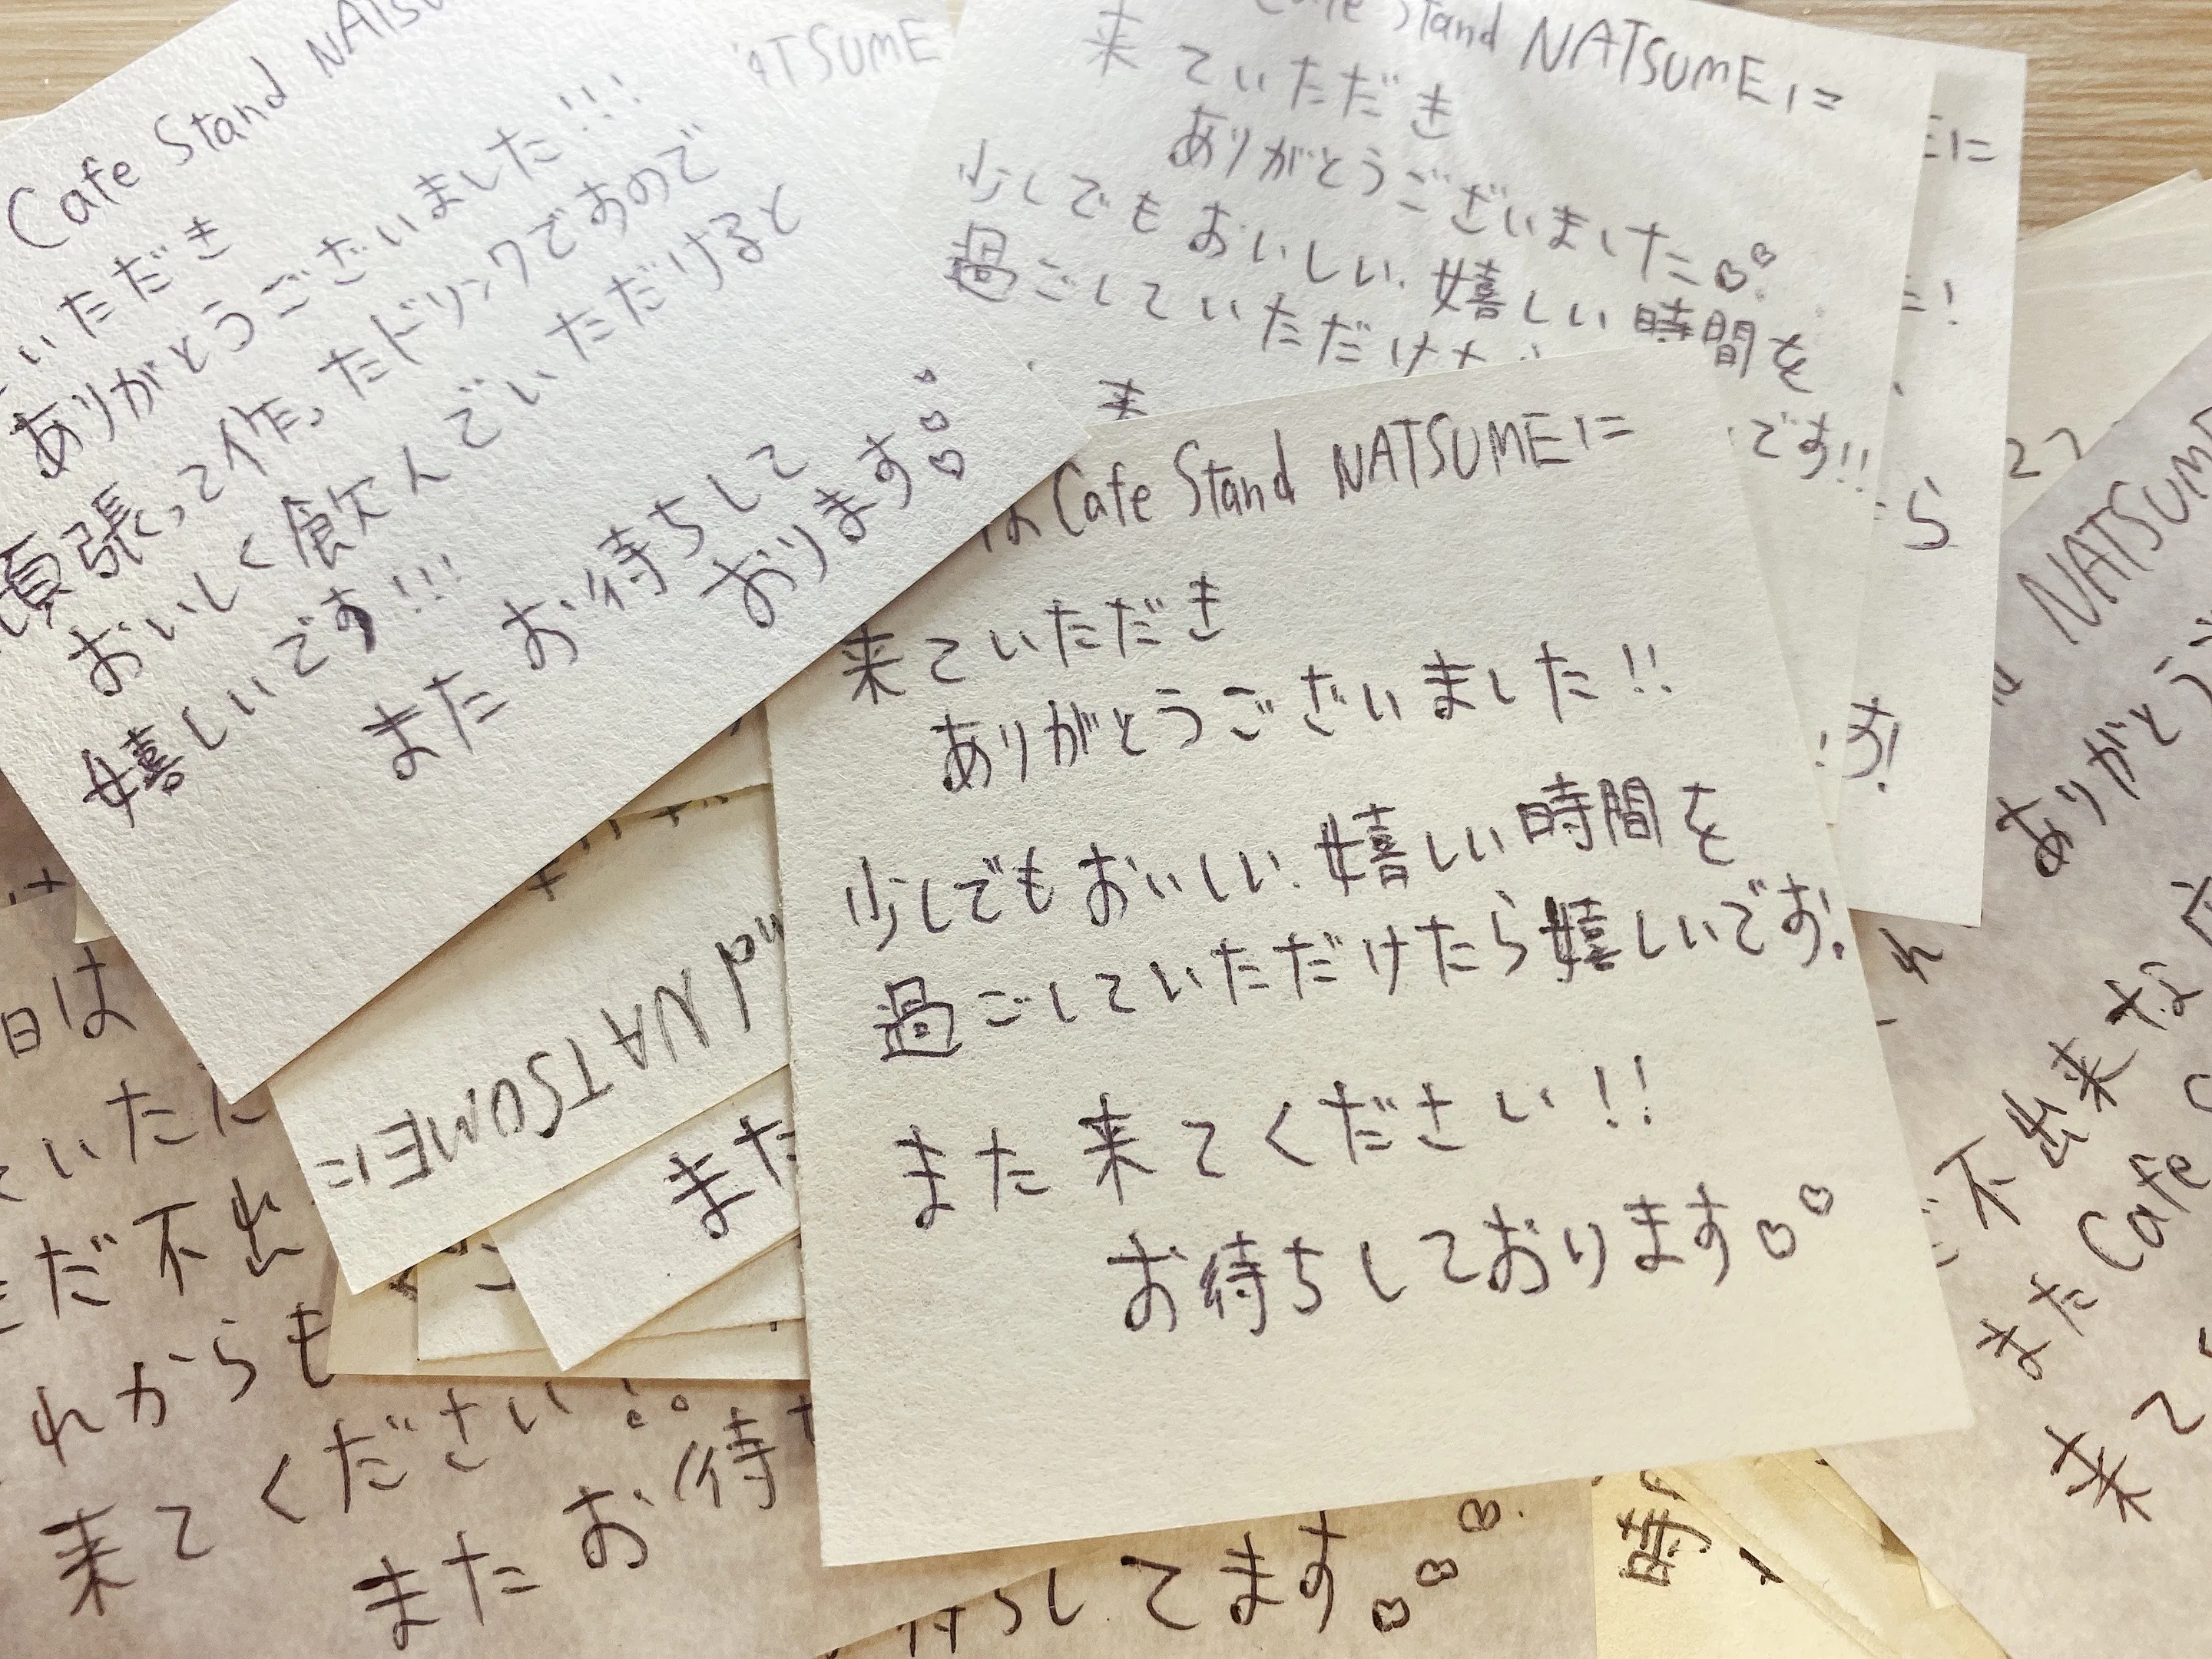 Cafe Stand
いただき
ありがとうございました!!!
頑張って作ったドリンクですので
おいしく飲んでいただけると
嬉しいです!!!
またお待ちして
おります
ATSUME
Stand NATSUMEに
来ていただき
ありがとうございました
少しでもおいしい、嬉しい時間を
過ごしていただけた
です!!
Cafe Stand NATSUMEに
来ていただき
ありがとうございました!!
少しでもおいしい、嬉しい時間を
過ごしていただけたら嬉しいです。
また来てください!!
お待ちしております
Eに
ら
す!
NATSUME
ありがとう
不出来な
またCafe
来て
nd NATSUMEに
また
日は
いただ
だ不出
れからも
来てください
またお待
ちしてます
時